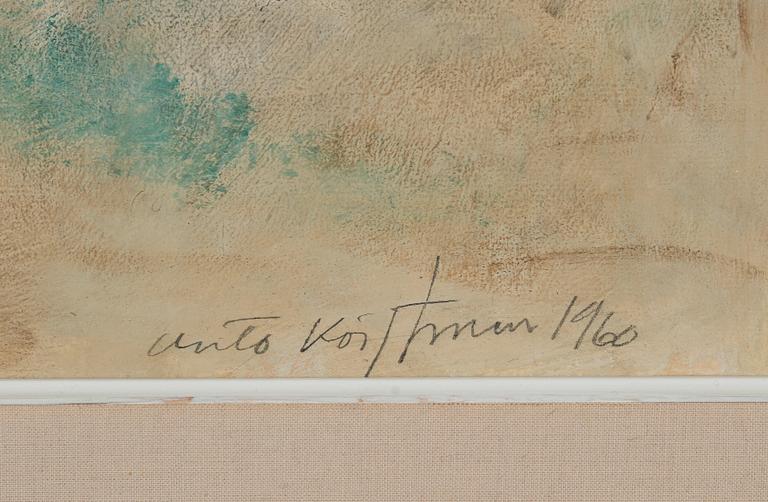 Unto Koistinen 1960